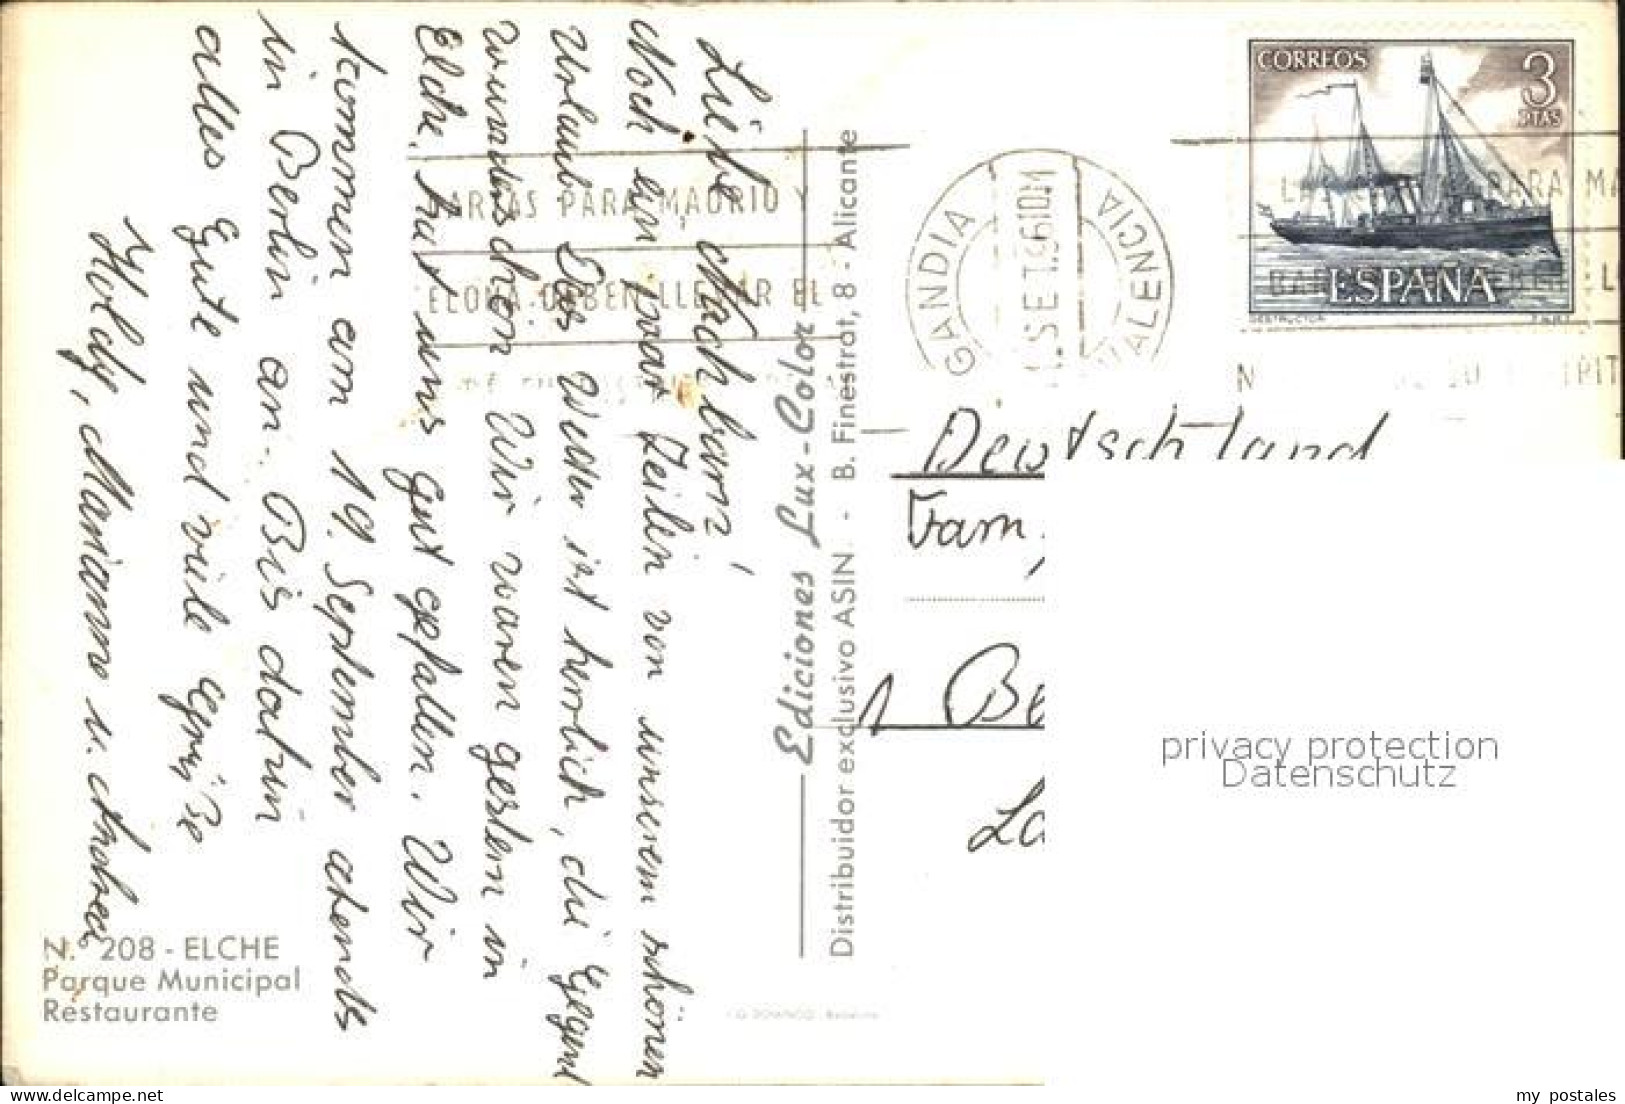 Liebe Nachbarn,
Noch ein paar Zeilen von unserem schönen
Urlaub. Das Wetter ist herrlich, die Gegend
wunderschön. Wir waren gestern in
Elche, hat uns gut gefallen. Wir
kommen am 19. September abends
in Berlin an. Bis dahin
alles Gute und viele Grüße
Holdy, Marianne u. Andrea
N.º 208 - ELCHE
Parque Municipal
Restaurante
Ediciones Lux-Color
Distribuidor exclusivo ASIN. - B. Finestrat, 8 - Alicante
CARTAS PARA MADRID Y
BARCELONA DEBEN LLEVAR EL
GANDIA
VALENCIA
CORREOS
3
PTAS
ESPAÑA
DESTRUCTOR
F.N.M.T.
PARA MA
Deutschland
Fam.
1 Be
La
privacy protection
Datenschutz
my postales